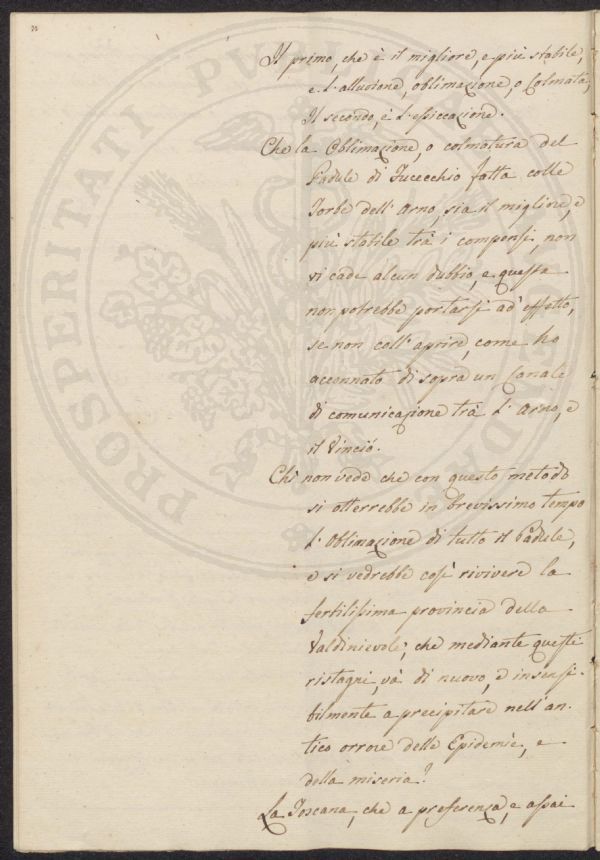 Il primo, che è il migliore, e più stabile,
e l'alluvione, oblimazione, o Colmata,
Il secondo, è l'essiccazione.
Che la Oblimazione, o colmatura del
Padule di Fucecchio fatta colle
Torbe dell'Arno, sia il migliore, e
più stabile trà i compensi, non
vi cade alcun dubbio, e questa
non potrebbe portarsi ad' effetto,
se non coll'aprire, come ho
accennato di sopra un Canale
di comunicazione trà l'Arno, e
il Vinció.
Chi non vede che con questo metodo
si otterrebbe in brevissimo tempo
l'Oblimazione di tutto il Padule,
e si vedrebbe così rivivere la
fertilissima provincia della
Valdinievole; che mediante questi
ristagni, và di nuovo, e insensi-
bilmente a precipitare nell'an-
tico orrore delle Epidemie, e
della miseria?
La Toscana, che a preferenza, e assai
PROSPERITATI PUBLICAE